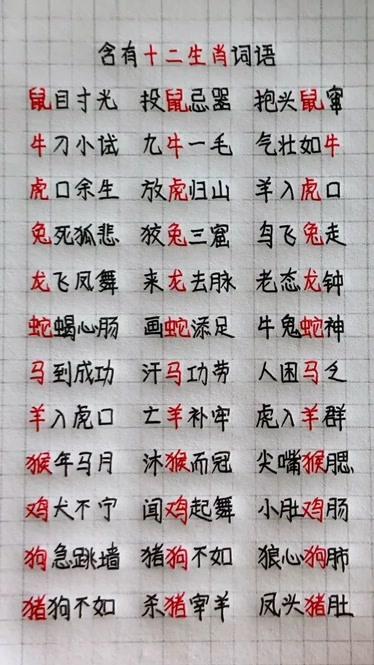 含有十二生肖词语
鼠目寸光 投鼠忌器 抱头鼠窜
牛刀小试 九牛一毛 气壮如牛
虎口余生 放虎归山 羊入虎口
兔死狐悲 狡兔三窟 鸟飞兔走
龙飞凤舞 来龙去脉 老态龙钟
蛇蝎心肠 画蛇添足 牛鬼蛇神
马到成功 汗马功劳 人困马乏
羊入虎口 亡羊补牢 虎入羊群
猴年马月 沐猴而冠 尖嘴猴腮
鸡犬不宁 闻鸡起舞 小肚鸡肠
狗急跳墙 猪狗不如 狼心狗肺
猪狗不如 杀猪宰羊 凤头猪肚